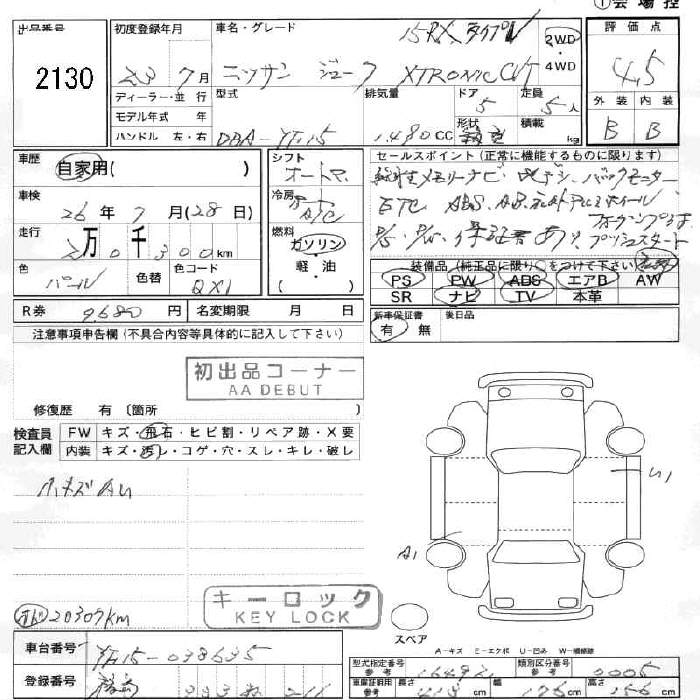 ①会場控
出品番号
2130
初度登録年月
23 7月
ディーラー・並 行
モデル年式 年
ハンドル 左・右
車名・グレード
15RX タイプV
ニッサン ジューク XTRONIC CVT
2WD
・
4WD
型式
DBA-YF15
排気量
1.490CC
ドア
5
定員
5人
形状
積載
kg
評価点
4.5
外装 内装
B B
車歴
自家用( )
車検
26年7月(28日)
走行
2万0千300km
色
パール
色替
色コード
QX1
シフト
オートマ
冷房
A/C
燃料
ガソリン
・
軽・油
( )
セールスポイント(正常に機能するものに限ります)
メモリーナビ・地デジ・バックモニター
ETC ABS・AB・アルミホイール
P/S・P/W・保証書あり、プッシュスタート
装備品(純正品に限り○をつけて下さい)
PS PW ABS エアB AW
SR ナビ TV 本革
R券 9.680円
名変期限 月 日
新車保証書
有 無
後日品
注意事項申告欄(不具合内容等具体的に記入して下さい)
初出品コーナー
AA DEBUT
修復歴 有 〔箇所 〕
検査員
記入欄
FW キズ・飛石・ヒビ割・リペア跡・X要
内装 キズ・汚レ・コゲ・穴・スレ・キレ・破レ
小キズ有り
A1
U1
20307km
キーロック
KEY LOCK
スペア
A-キズ E-エクボ U-凹み W-補修跡
車台番号
YF15-038635
登録番号
型式指定番号
参考
16492
類別区分番号
参考
0005
車庫証明用
参考
長さ
413cm
幅
176cm
高さ
156cm